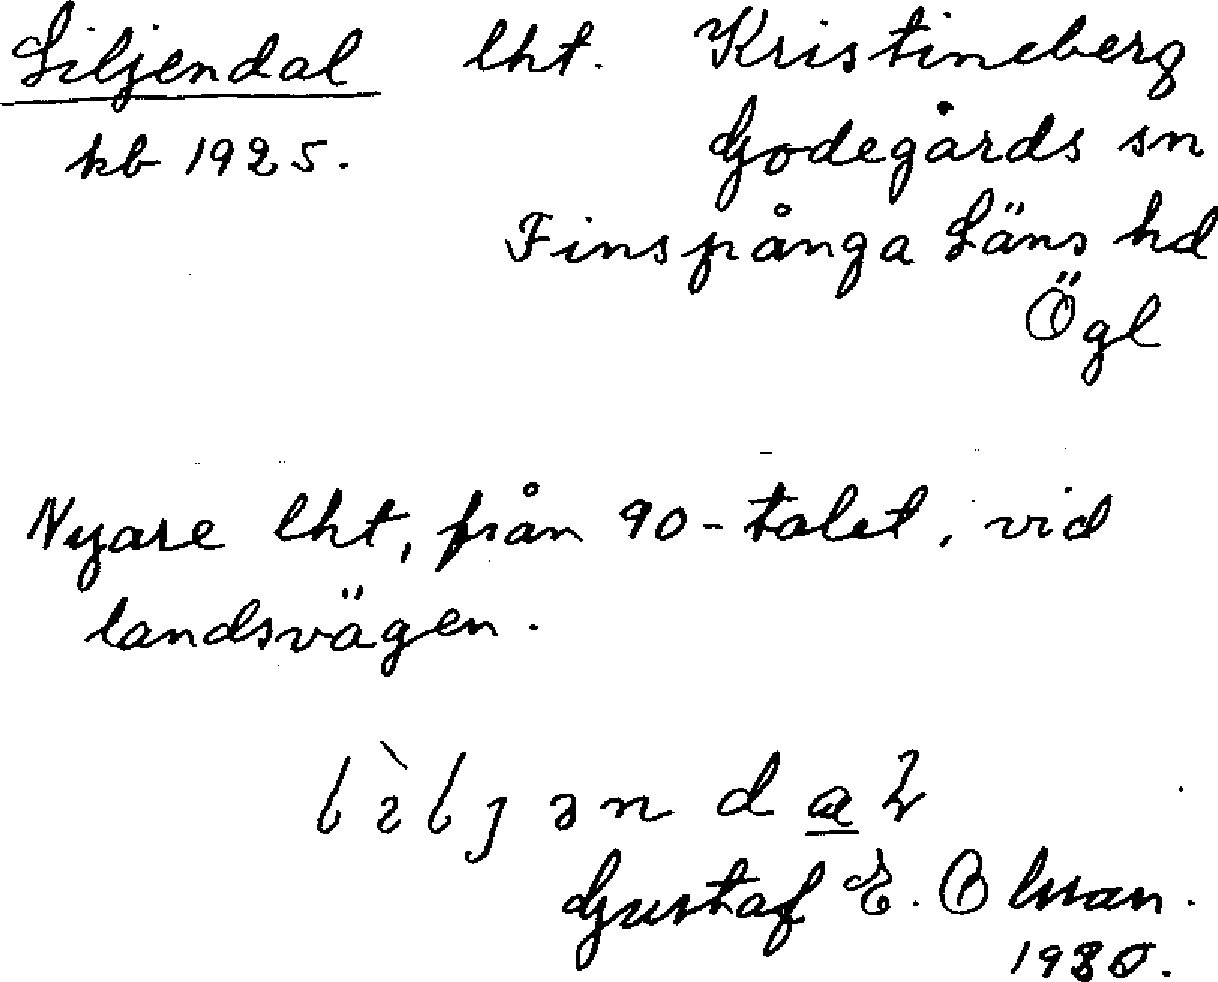 Liljendal lht. Kristineberg
kb 1925. Godegårds sn
Finspånga Läns hd
Ögl
Nyare lht, från 90-talet, vid
landsvägen.
Gustaf E. Olman.
1930.